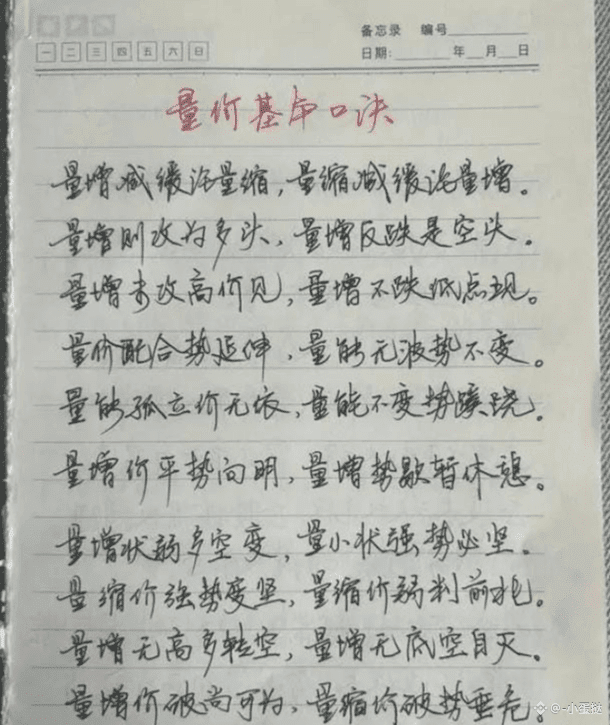 备忘录 编号
一 二 三 四 五 六 日
日期: 年 月 日
量价基本口诀
量增减缓注量缩，量缩减缓注量增。
量增则攻为多头，量增反跌是空头。
量增未攻高价见，量增不跌低点现。
量价配合势延伸，量能无波势不变。
量能孤立价无依，量能不变势蹊跷。
量增价平势向明，量增势歇暂休憩。
量增状弱多空变，量小状强势必坚。
量缩价强势变坚，量缩价弱判前兆。
量增无高多转空，量增无底空自灭。
量增价破尚可为，量缩价破势垂危